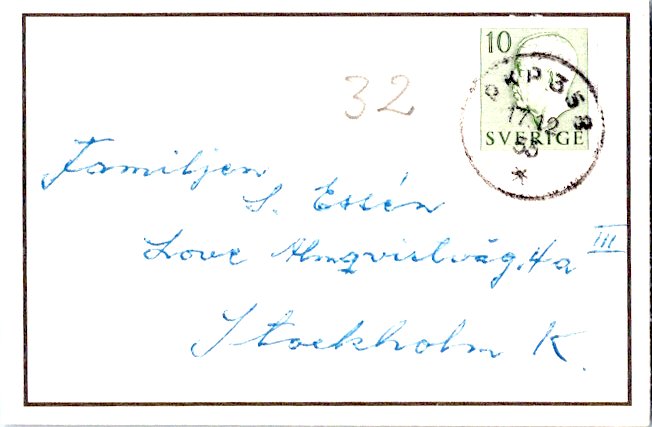 10
PKP 358
17.12
53
SVERIGE
*
32
Familjen
S. Essén
Love Almqvistväg. 4a III
Stockholm K.